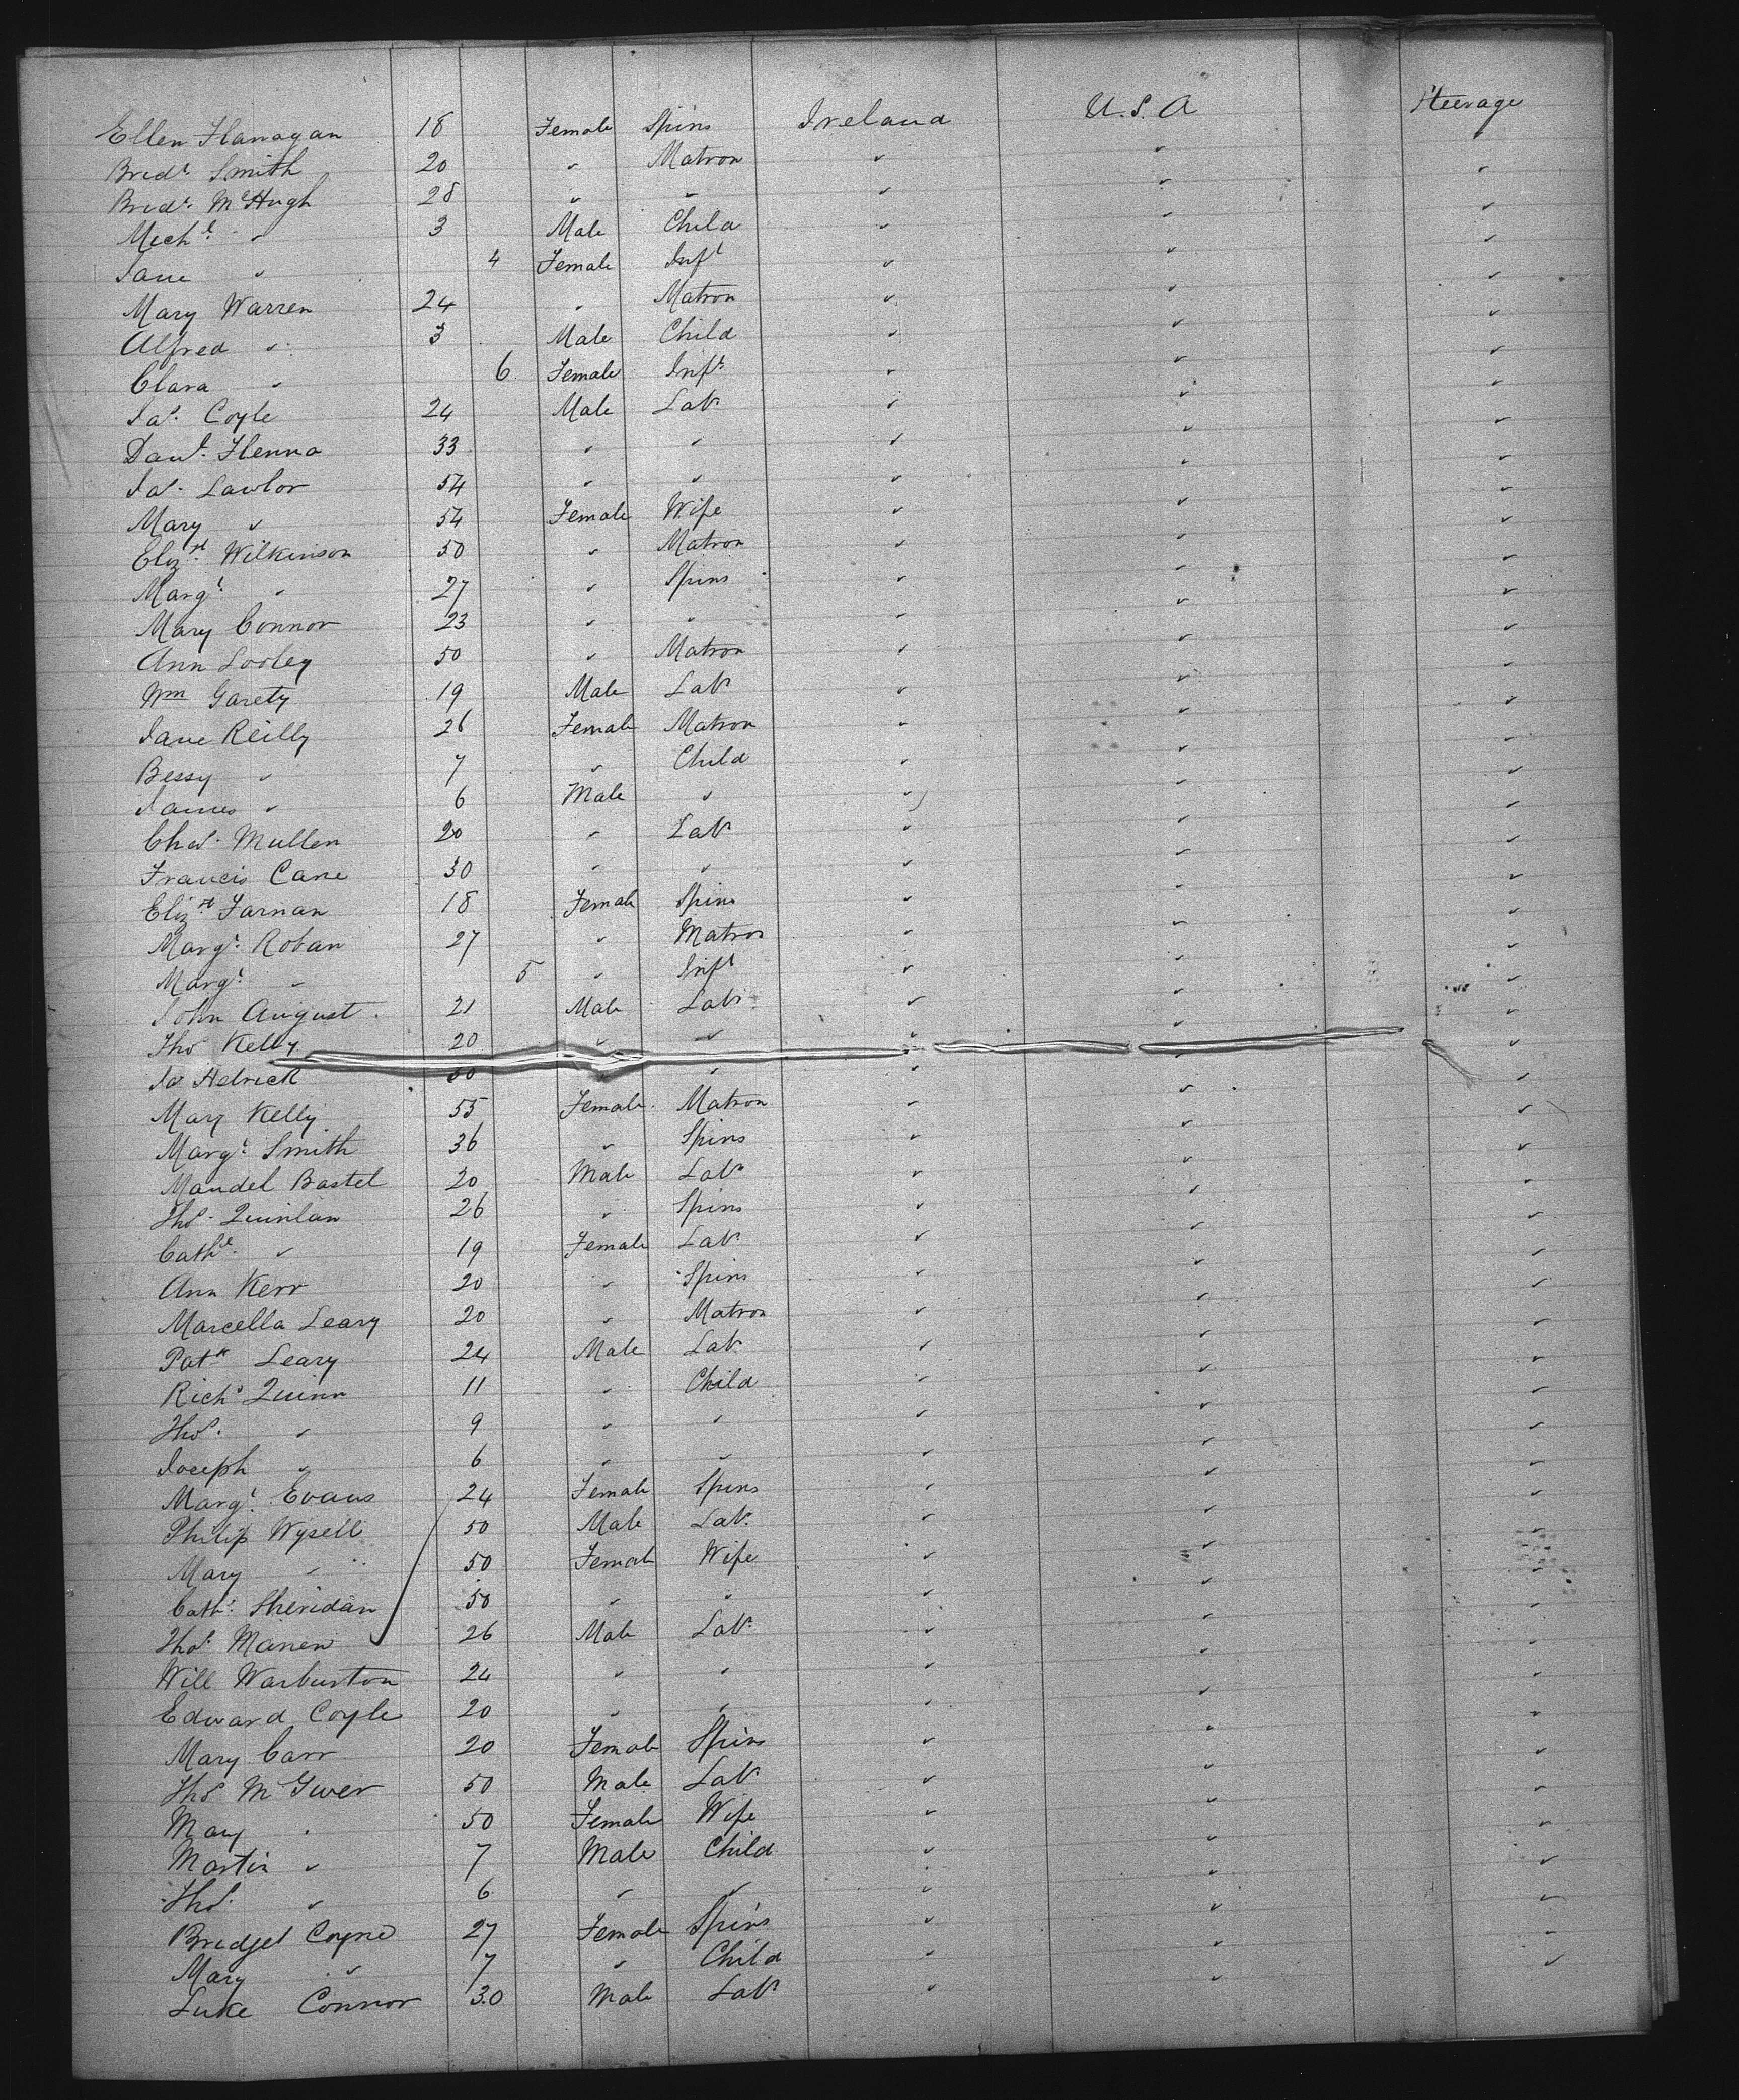 Ellen Flanagan 18 Female Spins Ireland U.S.A Steerage
Bridt Smith 20 " Matron " " "
Bridt McHugh 28 " " " " "
Michl " 3 Male Child " " "
Jane " 4 Female Inft " " "
Mary Warren 24 " Matron " " "
Alfred " 3 Male Child " " "
Clara " 6 Female Inft " " "
Jas. Coyle 24 Male Labr " " "
Danl. Flenna 33 " " " " "
Jas. Lawlor 54 " " " " "
Mary " 54 Female Wife " " "
Elizth Wilkinson 50 " Matron " " "
Margt " 27 " Spins " " "
Mary Connor 23 " " " " "
Ann Sooley 50 " Matron " " "
Wm Garety 19 Male Labr " " "
Jane Reilly 26 Female Matron " " "
Bessy " 7 " Child " " "
James " 6 Male " " " "
Chas. Mullen 20 " Labr " " "
Francis Cane 30 " " " " "
Elizth Farnan 18 Female Spins " " "
Margt. Roban 27 " Matron " " "
Margt. " 5 " Inft " " "
John August 21 Male Labr " " "
Thos Kelly 20 " " " " "
Jas Helrick " " " " "
Mary Kelly 55 Female Matron " " "
Margt. Smith 36 " Spins " " "
Mandel Bastel 20 Male Labr " " "
Thos. Quinlan 26 " Spins " " "
Cathe. " 19 Female Labr " " "
Ann Kerr 20 " Spins " " "
Marcella Leary 20 " Matron " " "
Patk Leary 24 Male Labr " " "
Richd Quinn 11 " Child " " "
Thos. " 9 " " " " "
Joseph " 6 " " " " "
Margt. Evans 24 Female Spins " " "
Philip Wysell 50 Male Labr. " " "
Mary " 50 Female Wife " " "
Cathe. Sheridan 50 " " " " "
Thos. Manen 26 Male Labr. " " "
Will Warburton 24 " " " " "
Edward Coyle 20 " " " " "
Mary Carr 20 Female Spins " " "
Thos McGwer 50 Male Labr " " "
Mary " 50 Female Wife " " "
Martin " 7 Male Child " " "
Thos. " 6 " " " " "
Bridget Coyne 27 Female Spins " " "
Mary " 7 " Child " " "
Luke Connor 30 Male Labr " " "